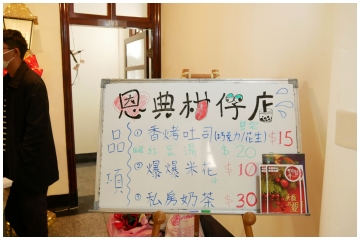 恩典柑仔店
品項
①香烤吐司(巧克力/花生)$15
$20
②爆爆米花 $10
③私房奶茶 $30